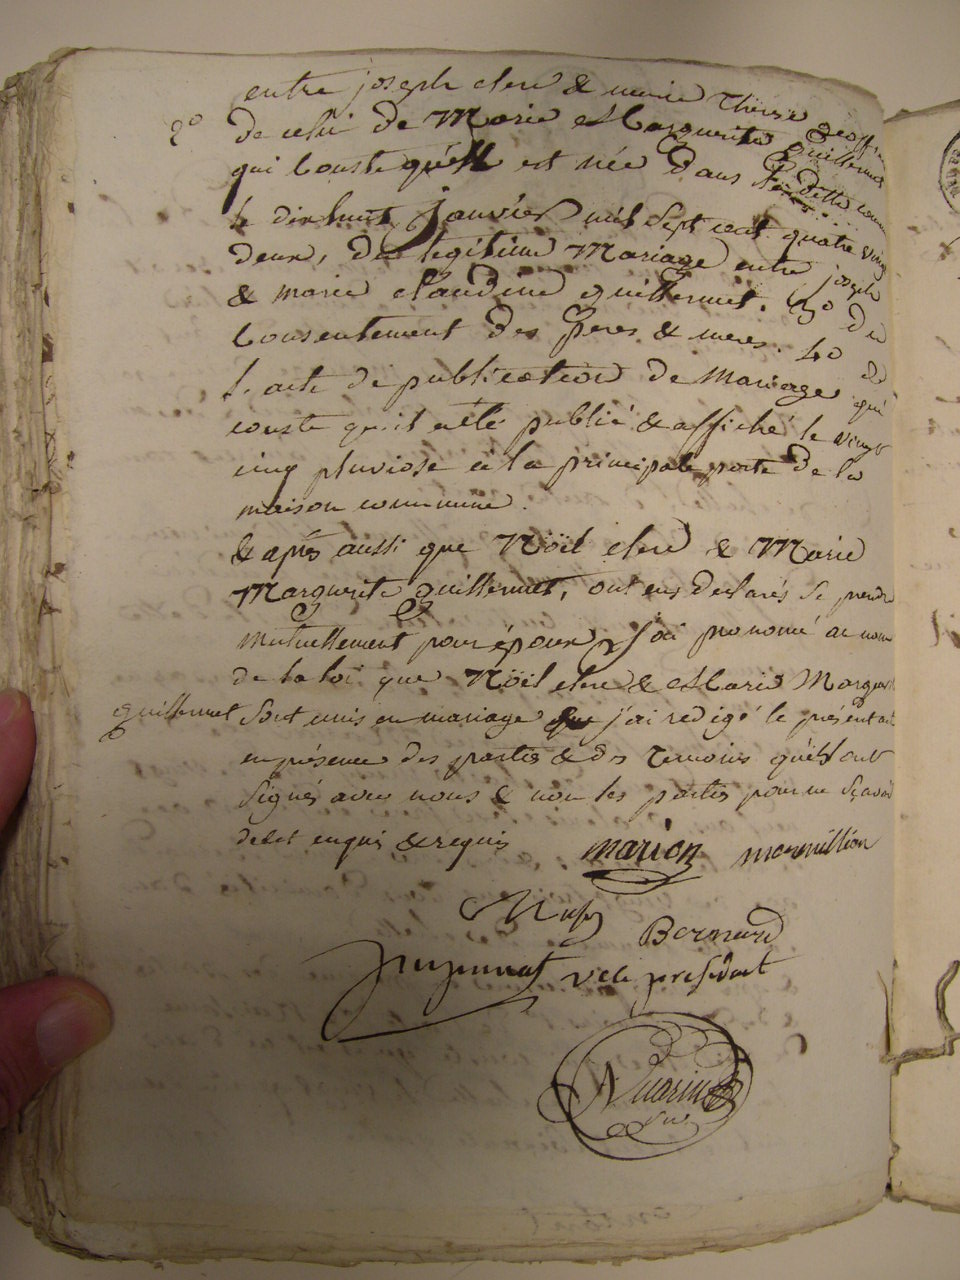 entre joseph clerc & marie Therese geoffra
2° de celui de Marie Marguerite guillermet
qui Conste qu'elle est née dans la ditte com
le dixhuit janvier mil Sept cent quatre vingt
deux, du legitime Mariage entre joseph
& marie claudine guillermet. 3° du
Consentement des peres & meres. 4° de
l'acte de publication de Mariage qui
conste qu'il a été publié & affiché le vingt
cinq pluviose a la principale porte de la
maison commune.
& apres aussi que Nöel clerc & Marie
Marguerite guillermet, ont eus declarés se prendre
mutuellement pour époux, j'ai prononcé au nom
de la loi que Nöel clerc & Marie Marguerit
guillermet sont unis en mariage & j'ai redigé le présent act
en présence des parties & des temoins qu'ils ont
Signés avec nous & non les parties pour ne sçavoir
de cet enquis & requis marion mermillion
Bernard
vice président